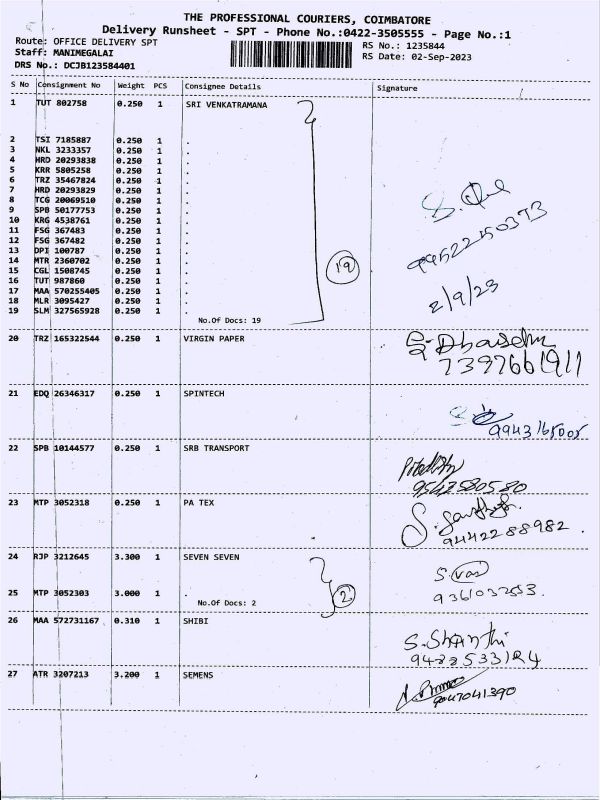 THE PROFESSIONAL COURIERS, COIMBATORE
Delivery Runsheet - SPT - Phone No.:0422-3505555 - Page No.:1
Route: OFFICE DELIVERY SPT
Staff: MANIMEGALAI
DRS No.: DCJB123584401
RS No.: 1235844
RS Date: 02-Sep-2023
S No Consignment No Weight PCS Consignee Details Signature
1 TUT 802758 0.250 1 SRI VENKATRAMANA
2 TSI 7185887 0.250 1 .
3 NKL 3233357 0.250 1 .
4 HRD 20293838 0.250 1 .
5 KRR 5805258 0.250 1 .
6 TRZ 35467824 0.250 1 .
7 HRD 20293829 0.250 1 .
8 TCG 20069510 0.250 1 .
9 SPB 50177753 0.250 1 .
10 KRG 4538761 0.250 1 .
11 FSG 367483 0.250 1 .
12 FSG 367482 0.250 1 .
13 DPI 100787 0.250 1 .
14 MTR 2360702 0.250 1 .
15 CGL 1508745 0.250 1 .
16 TUT 987860 0.250 1 .
17 MAA 570255405 0.250 1 .
18 MLR 3095427 0.250 1 .
19 SLM 327565928 0.250 1 .
No.Of Docs: 19
19
2/9/23
20 TRZ 165322544 0.250 1 VIRGIN PAPER
7397661911
21 EDQ 26346317 0.250 1 SPINTECH
9943165005
22 SPB 10144577 0.250 1 SRB TRANSPORT
9542580580
23 MTP 3052318 0.250 1 PA TEX
9442288982
24 RJP 3212645 3.300 1 SEVEN SEVEN
25 MTP 3052303 3.000 1 .
No.Of Docs: 2
2
26 MAA 572731167 0.310 1 SHIBI
S. Shanthi
27 ATR 3207213 3.200 1 SEMENS
9047041390